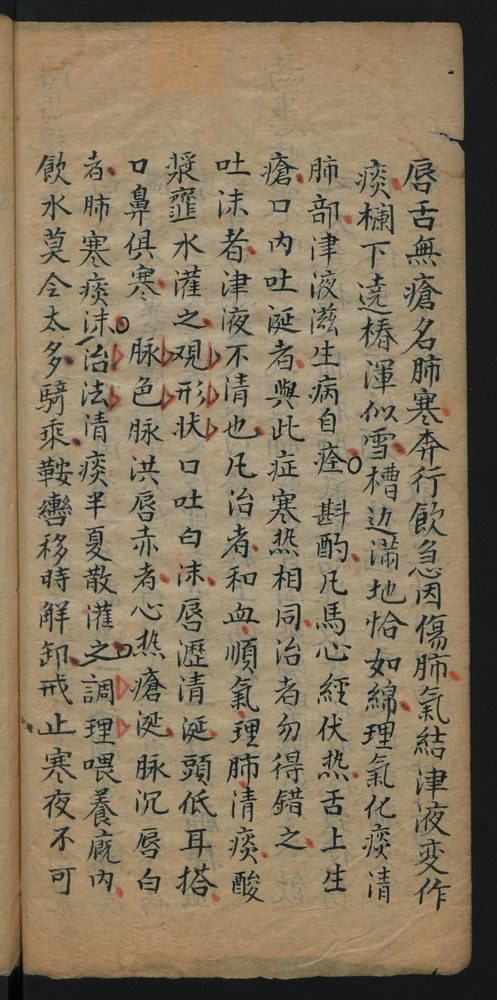 唇舌無瘡名肺寒奔行飲急因傷肺氣結津液变作
痰欄下遶樁渾似雪槽边滿地恰如綿理氣化痰清
肺部津液滋生病自痊○斟酌凡馬心經伏热舌上生
瘡口內吐涎者與此症寒热相同治者勿得錯之
吐沫者津液不清也凡治者和血順氣理肺清痰酸
漿虀水灌之观形状口吐白沫唇瀝清涎頭低耳搭
口鼻俱寒○脉色脉洪唇赤者心热瘡涎脉沉唇白
者肺寒痰沫○治法清痰半夏散灌之○調理喂養廐內
飲水莫令太多騎乘鞍轡移時解卸戒止寒夜不可